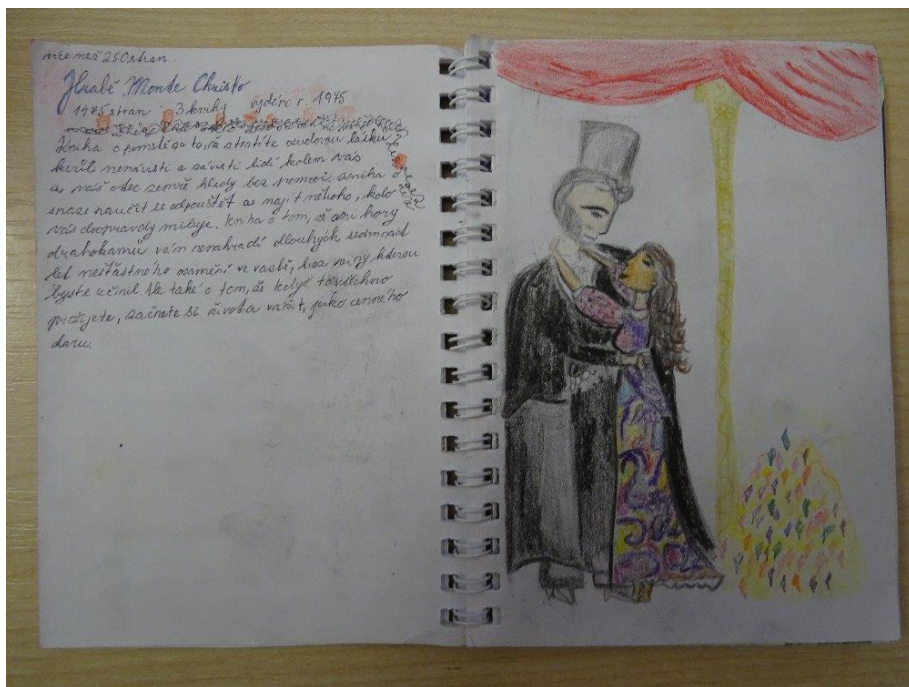 více než 250 stran
Hrabě Monte Christo
1475 stran 3 knihy vydáno r. 1975
Kniha o pomstě za to, že ztratíte osudovou lásku
kvůli nenávisti a závisti lidí kolem vás
a váš otec zemře hlady bez pomoci. kniha o
snaze naučit se odpouštět a najít někoho, kdo
vás doopravdy miluje. Kniha o tom, že ani hory
drahokamů vám nenahradí dlouhých sedmnáct
let nešťastného osamění ve vazbě, bez viny kterou
byste učinil. Ale také o tom, že když to všechno
prožijete, začnete si života vážit, jako cenného
daru.